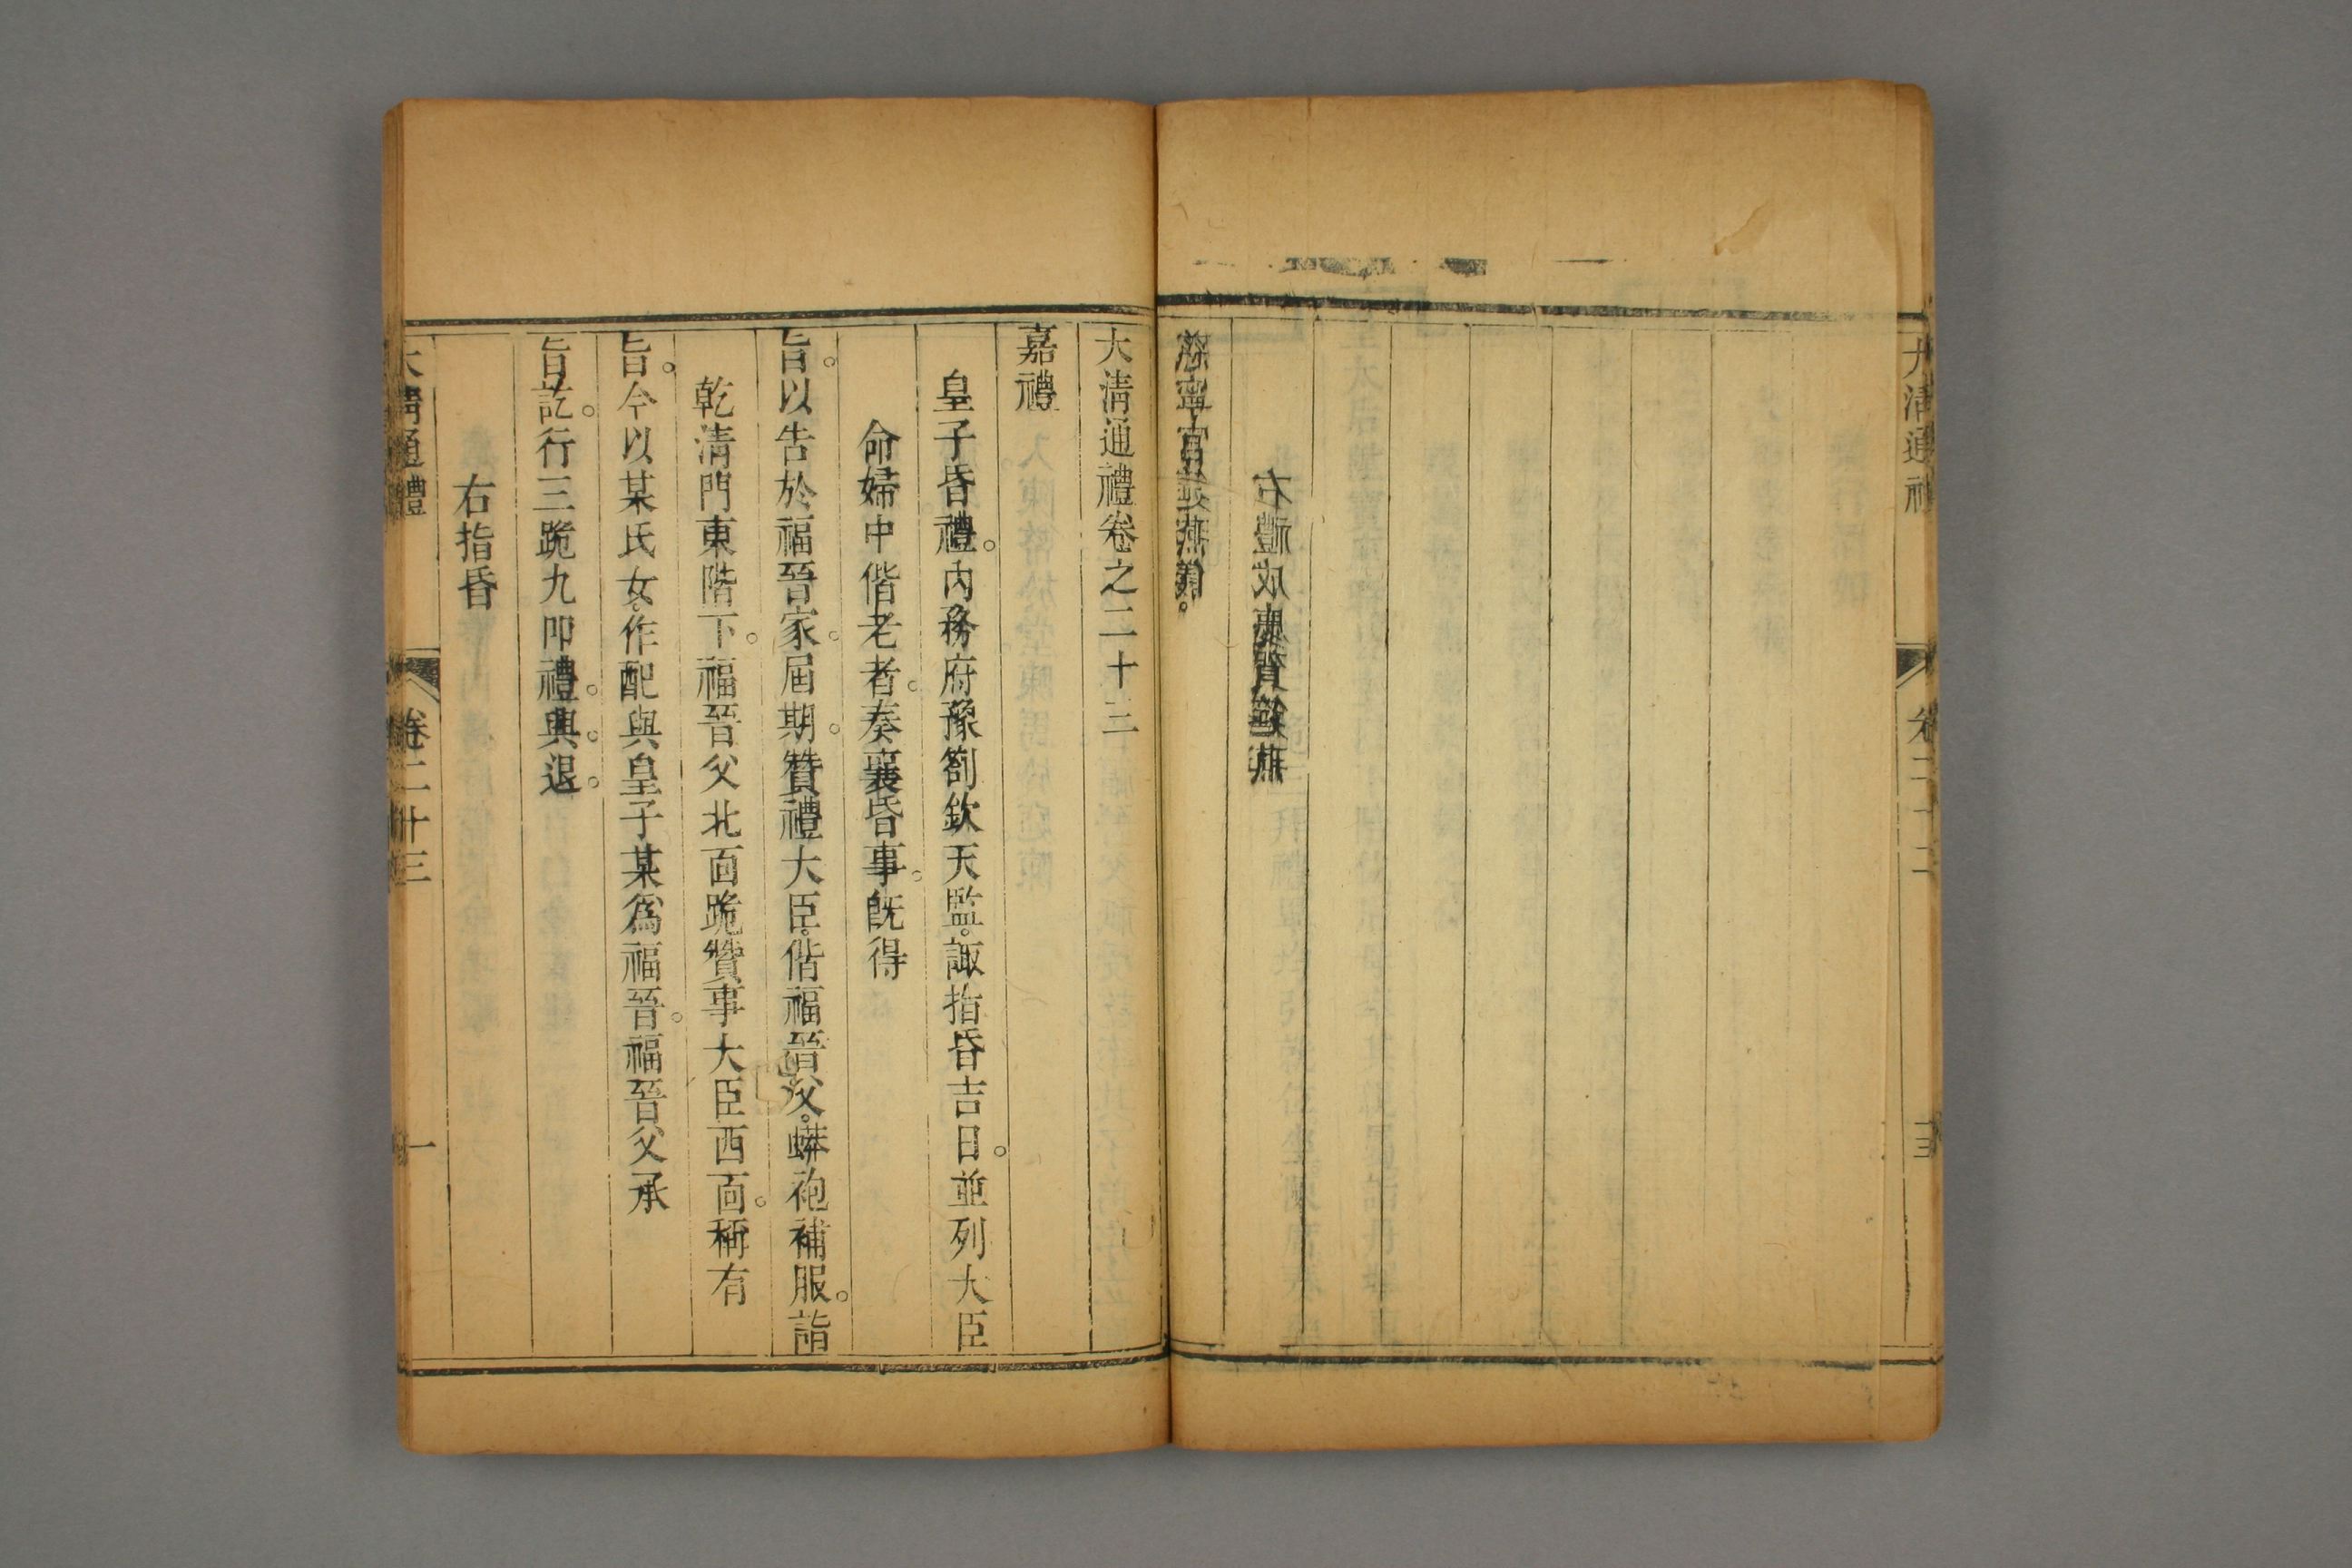 大清通禮 卷二十二
大清通禮卷之二十三
嘉禮
皇子昏禮。內務府豫劄欽天監。諏指昏吉日。並列大臣
命婦中偕老者。奏襄昏事。旣得
旨。以告於福晉家。屆期。贊禮大臣。偕福晉父。蟒袍補服。詣
乾清門東階下。福晉父北面跪。贊事大臣西面。稱有
旨。今以某氏女。作配與皇子某爲福晉。福晉父承
旨訖。行三跪九叩禮。興。退。
右指昏
大清通禮 卷二十三 一